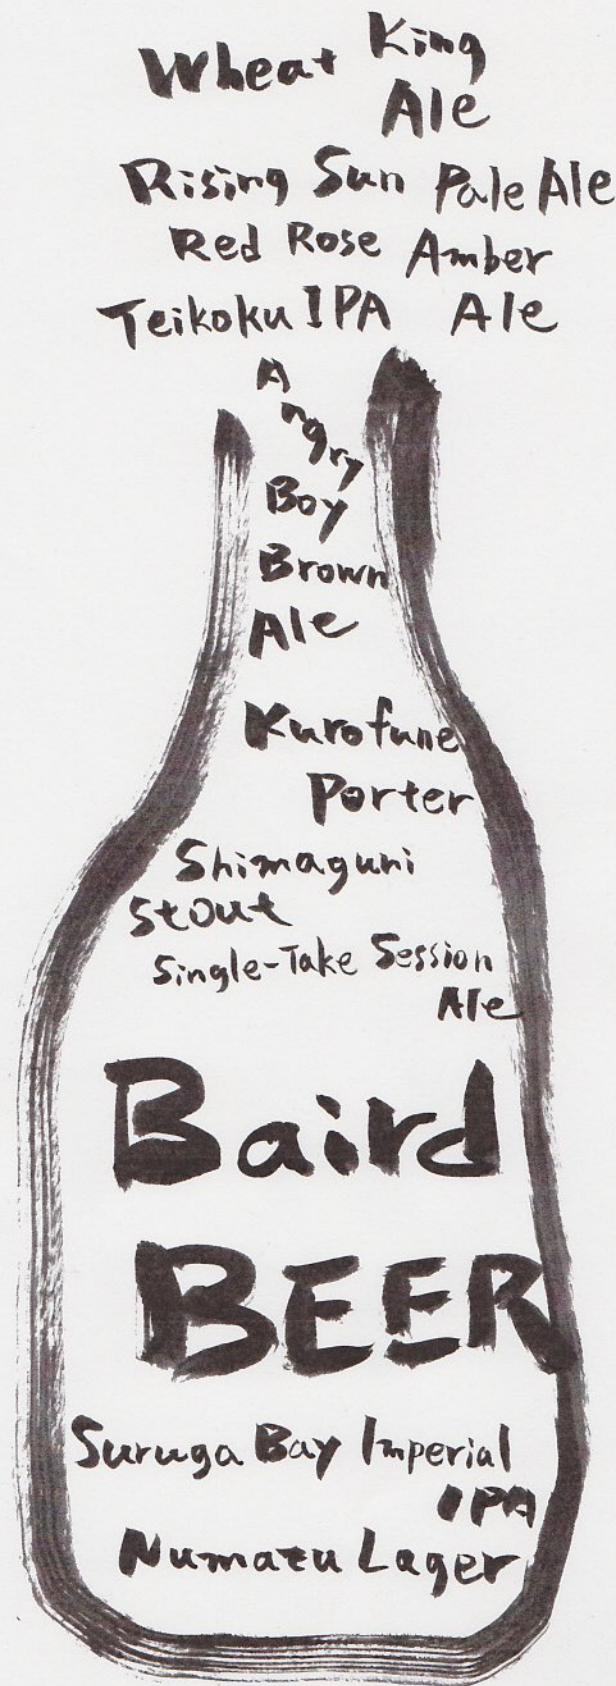 Wheat King
Ale
Rising Sun Pale Ale
Red Rose Amber
Teikoku IPA Ale
Angry
Boy
Brown
Ale
Kurofune
Porter
Shimaguni
Stout
Single-Take Session
Ale
Baird
BEER
Suruga Bay Imperial
IPA
Numazu Lager